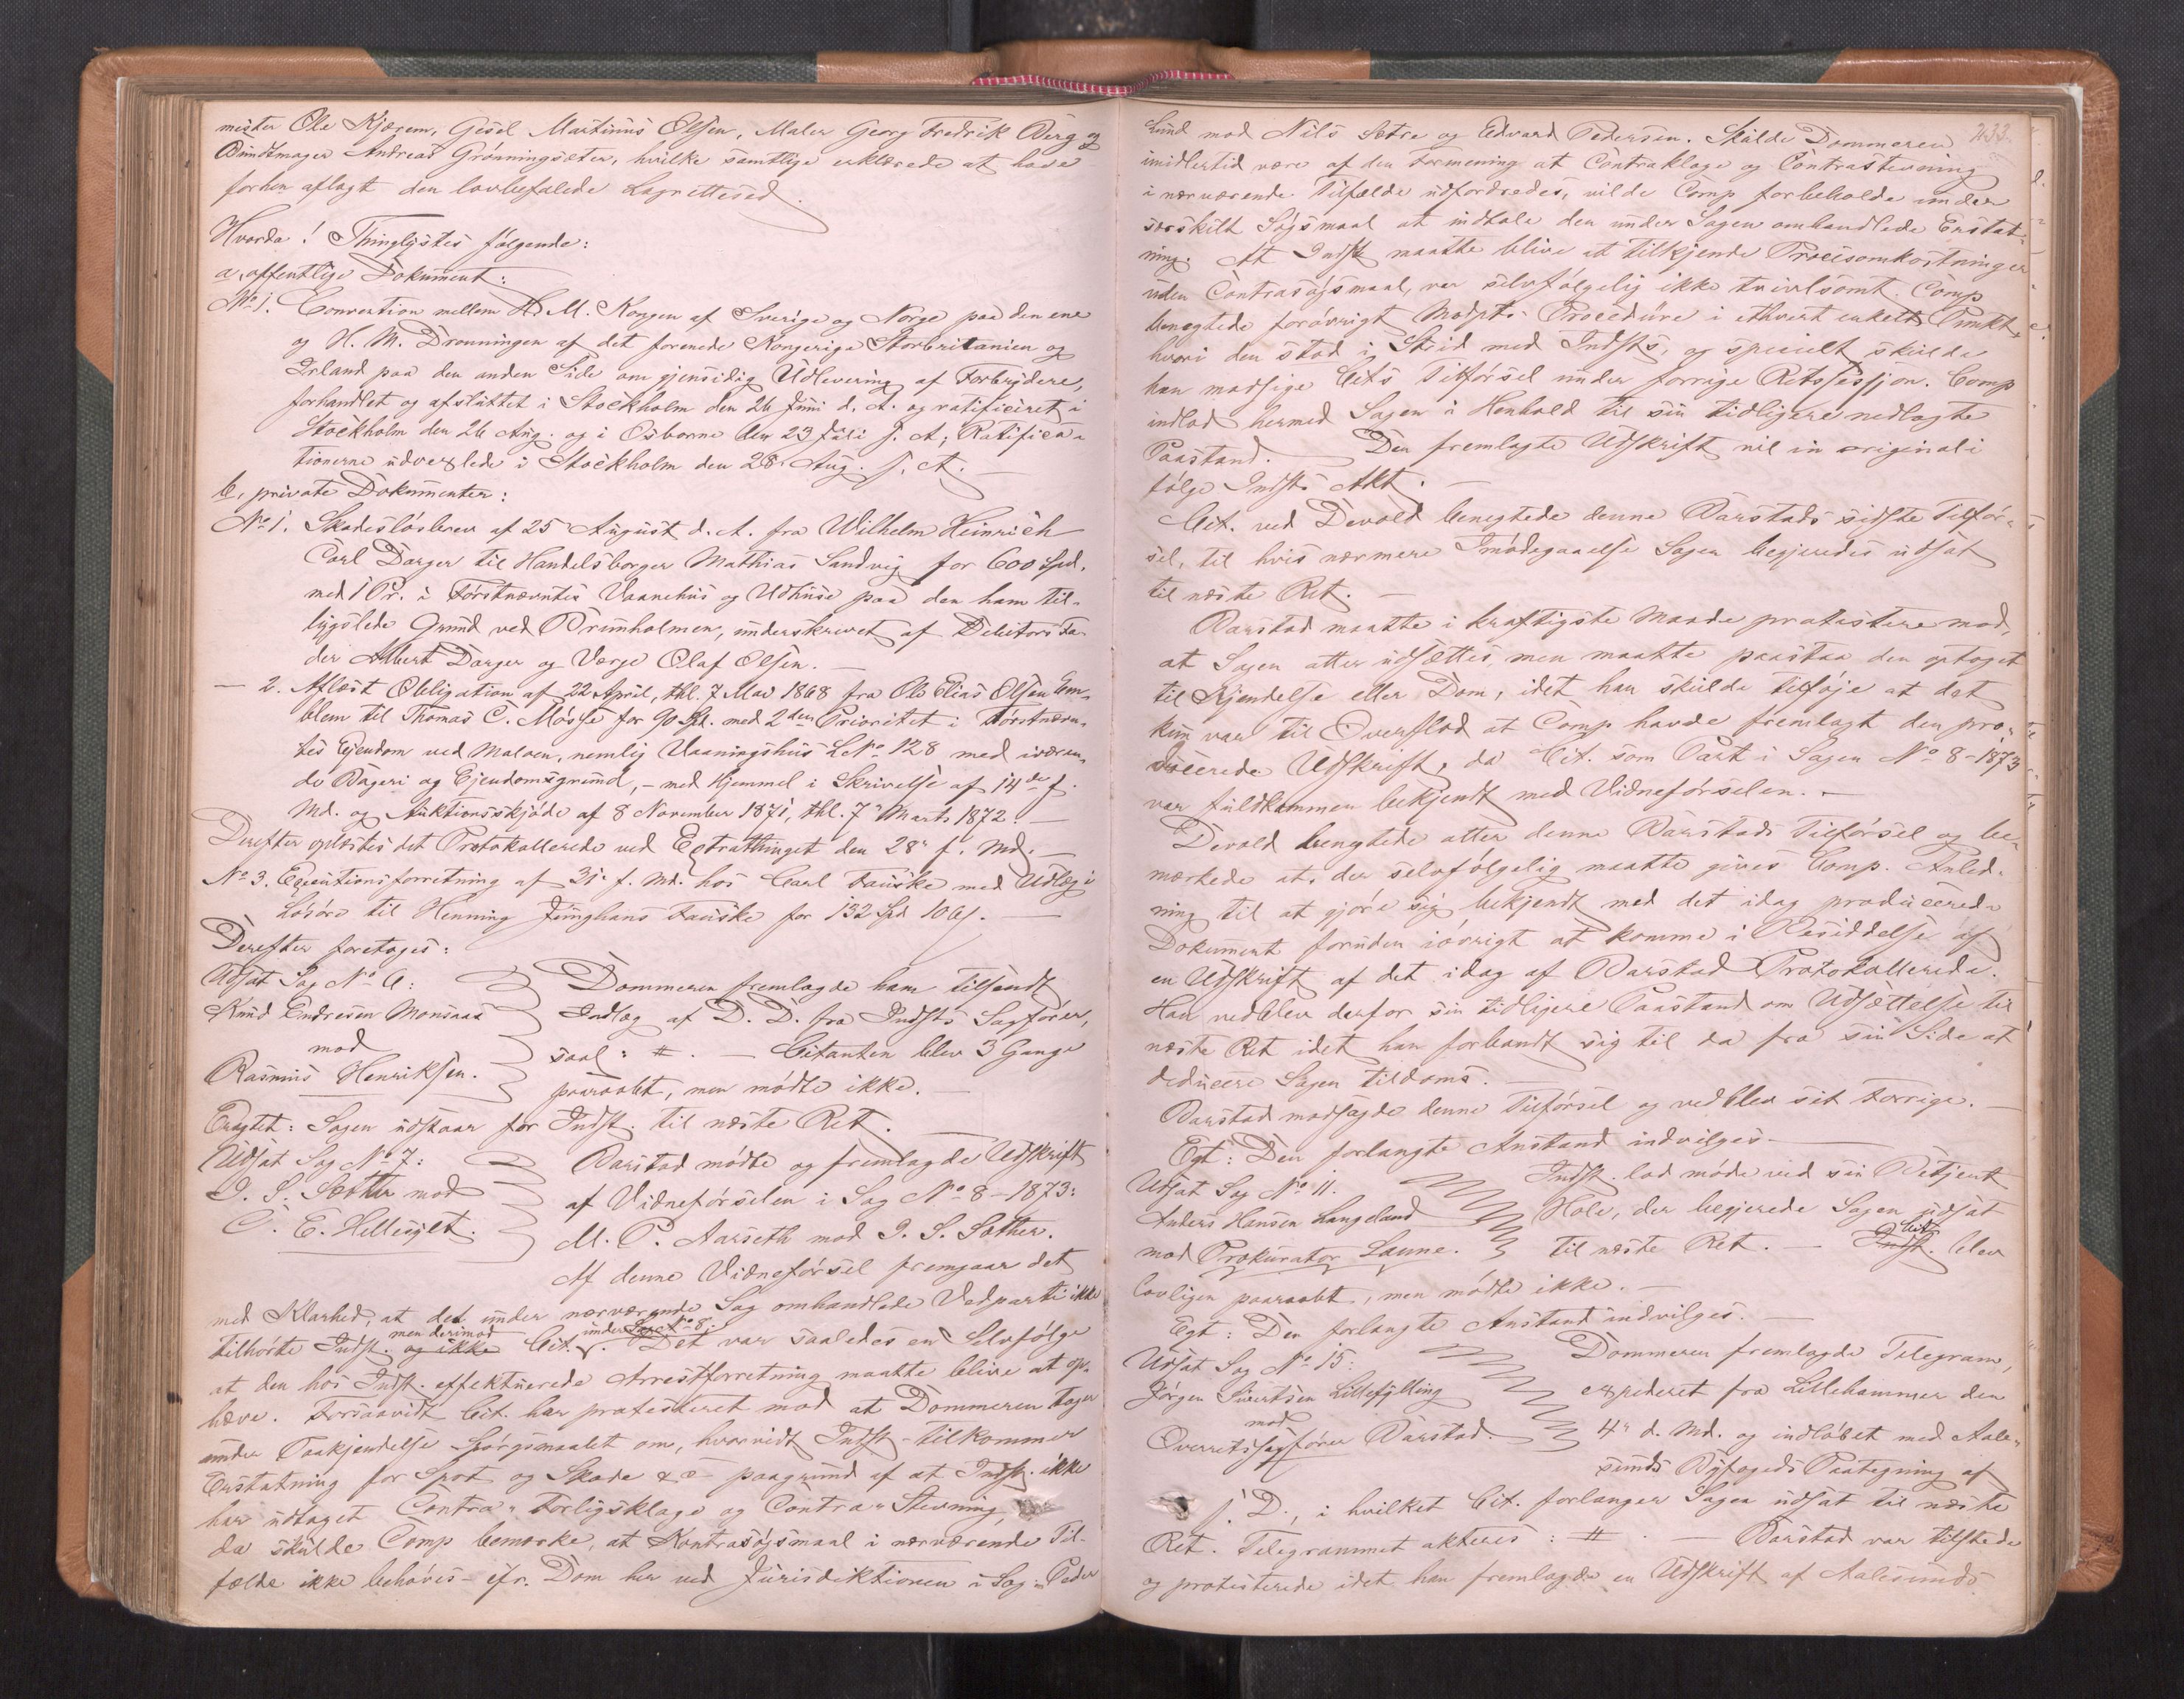 mester Ole Kjærem, Gesel Martinus Olsen, Maler Georg Fredrik Berg og
Bundtmager Andreas Grønningsæter, hvilke samtlige erklærede at have
forhen aflagt den lovbefalede Lagrettesed.
Hvorda! Thinglystes følgende:
a, offentlige Dokument:
No 1. Convention mellem H. M. Kongen af Sverige og Norge paa den ene
og H. M. Dronningen af det forenede Kongerige Storbritanien og
Irland paa den anden Side om gjensidig Udlevering af Forbrydere,
forhandlet og afsluttet i Stockholm den 26 Juni d. A. og ratificeret i
Stockholm den 26 Aug. og i Osborne den 23 Juli s. A; Ratifica-
tionerne udvexlede i Stockholm den 28 Aug. s. A. —
b, private Dokumenter:
No 1. Skadesløsbrev af 25 August d. A. fra Wilhelm Heinrich
Carl Darger til Handelsborger Mathias Sandvig for 600 Spd.
med 1 Pr. i Førstnævntes Vaanehus og Udhuse paa den ham til-
bygslede Grund ved Brunholmen, underskrevet af Debitors Fa-
der Albert Darger og Værge Olaf Olsen. —
— 2. Aflæst Obligation af 22 April, thl. 7 Mai 1868 fra Ole Elias Olsen Em-
blem til Thomas C. Møsse for 90 Spd. med 2den Prioritet i Førstnævn-
tes Ejendom ved Maloen, nemlig Vaaningshus L No 128 med iværen-
de Bageri og Ejendomsgrund, – med Hjemmel i Skrivelse af 14de f.
Md. og Auktionsskjøde af 8 November 1871, thl. 7 Marts 1872. —
Derefter oplæstes det Protokollerede ved Extrathinget den 28 f. Md. —
No 3. Executionsforretning af 31 f. Md. hos Carl Fauske med Udlæg i
Løsøre til Henning Junghans Fauske for 132 Spd 106 s. —
Derefter foretoges:
Udsat Sag No 6:
Knud Endresen Monsaas
mod
Rasmus Henriksen.
Dommeren fremlagde ham tilsendt
Indlæg af D. D. fra Indsts Sagfører,
saal: #. — Citanten blev 3 Gange
paaraabt, men mødte ikke. —
Eragtet: Sagen udstaar for Indst. til næste Ret. —
Udsat Sag No 7:
I. S. Sæther mod
C. E. Hellesylt.
Barstad mødte og fremlagde Udskrift
af Vidneførselen i Sag No 8 – 1873:
M. P. Aarseth mod I. S. Sæther.
Af denne Vidneførsel fremgaar det
med Klarhed, at det under nærværende Sag omhandlede Vedparti ikke
tilhørte Indst. og ikke men derimod Cit. under Sag No 8. Det var saaledes en Selvfølge
at den hos Indst. effektuerede Arrestforretning maatte blive at op-
hæve. Forsaavidt Cit. har protesteret mod at Dommeren tager
under Paakjendelse Spørgsmaalet om, hvorvidt Indst. tilkommer
Erstatning for Spot og Skade &c paagrund af at Indst. ikke
har udtaget Contra-Forligsklage og Contra-Stevning,
da skulde Comp bemærke, at Kontrasøgsmaal i nærværende Til-
fælde ikke behøves – cfr. Dom her ved Jurisdiktionen i Sag: Peder
233.
Lund mod Nils Sætre og Edvard Pedersen. Skulde Dommeren
imidlertid være af den Formening at Contraklage og Contrastevning
i nærværende Tilfælde udfordredes, vilde Comp forbeholde under
særskilt Søgsmaal at indtale den under Sagen omhandlede Erstat-
ning. At Indst. maatte blive at tilkjende Procesomkostninger
uden Contrasøgsmaal, var selvfølgelig ikke tvivlsomt. Comp
benegtede forøvrigt Modpts Procedure i ethvert enkelt Punkt,
hvori den stod i Strid med Indsts, og specielt skulde
han modsige Cits Tilførsel under forrige Retssession. Comp
indlod hermed Sagen i Henhold til sin tidligere nedlagte
Paastand. — Den fremlagte Udskrift vil in originali
følge Indsts Akt. —
Cit. ved Devold benegtede denne Barstads sidste Tilfør-
sel, til hvis nærmere Imødegaaelse Sagen begjeredes udsat
til næste Ret. —
Barstad maatte i kraftigste Maade protestere mod,
at Sagen atter udsættes, men maatte paastaa den optaget
til Kjendelse eller Dom, idet han skulde tilføje at det
kun var til Overflod at Comp havde fremlagt den pro-
ducerede Udskrift, da Cit. som Part i Sagen No 8 – 1873
var fuldkommen bekjendt med Vidneførselen. —
Devold benegtede atter denne Barstads Tilførsel og be-
mærkede at der selvfølgelig maatte gives Comp. Anled-
ning til at gjøre sig bekjendt med det idag producerede
Dokument foruden iøvrigt at komme i Besiddelse af
en Udskrift af det idag af Barstad Protokollerede.
Han vedblev derfor sin tidligere Paastand om Udsættelse til
næste Ret idet han forbandt sig til da fra sin Side at
deducere Sagen tildoms. —
Barstad modsagde denne Tilførsel og vedblev sit Forrige. —
Egt: Den forlangte Anstand indvilges. —
Udsat Sag No 11.
Anders Hansen Langeland
mod Prokurator Lanne.
Indst. lod møde ved sin Betjent
Hole, der begjerede Sagen udsat
til næste Ret. — Indst. Cit. blev
lovligen paaraabt, men mødte ikke. —
Egt: Den forlangte Anstand indvilges. —
Udsat Sag No 15:
Jørgen Sivertsen Lillefylling
mod
Overretssagfører Barstad.
Dommeren fremlagde Telegram,
expederet fra Lillehammer den
4 d. Md. og indløbet med Aale-
sunds Byfogeds Paategning af
s. D., i hvilket Cit. forlanger Sagen udsat til næste
Ret. Telegrammet akteres: #. — Barstad var tilstede
og protesterede idet han fremlagde en Udskrift af Aalesunds